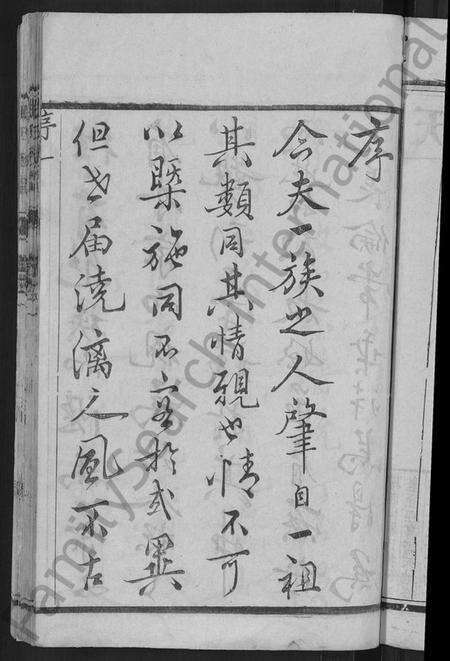 序
今夫一族之人肇自一祖
其類同其情親也情不可
以槩施同不容於或異
但世届澆漓之風不古
序 一
FamilySearch International